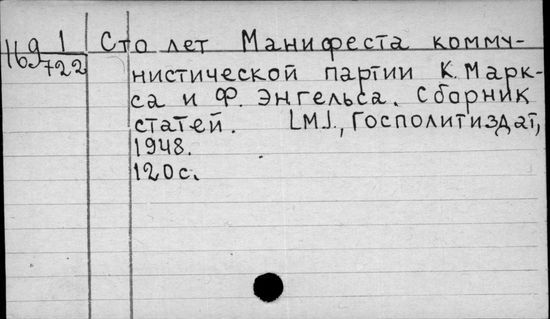 169 1/722
Сто лет Манифеста комму-
нистической партии К. Марк-
са и Ф. Энгельса. Сборник
статей. [М.], Госполитиздат,
1948.
120 с.